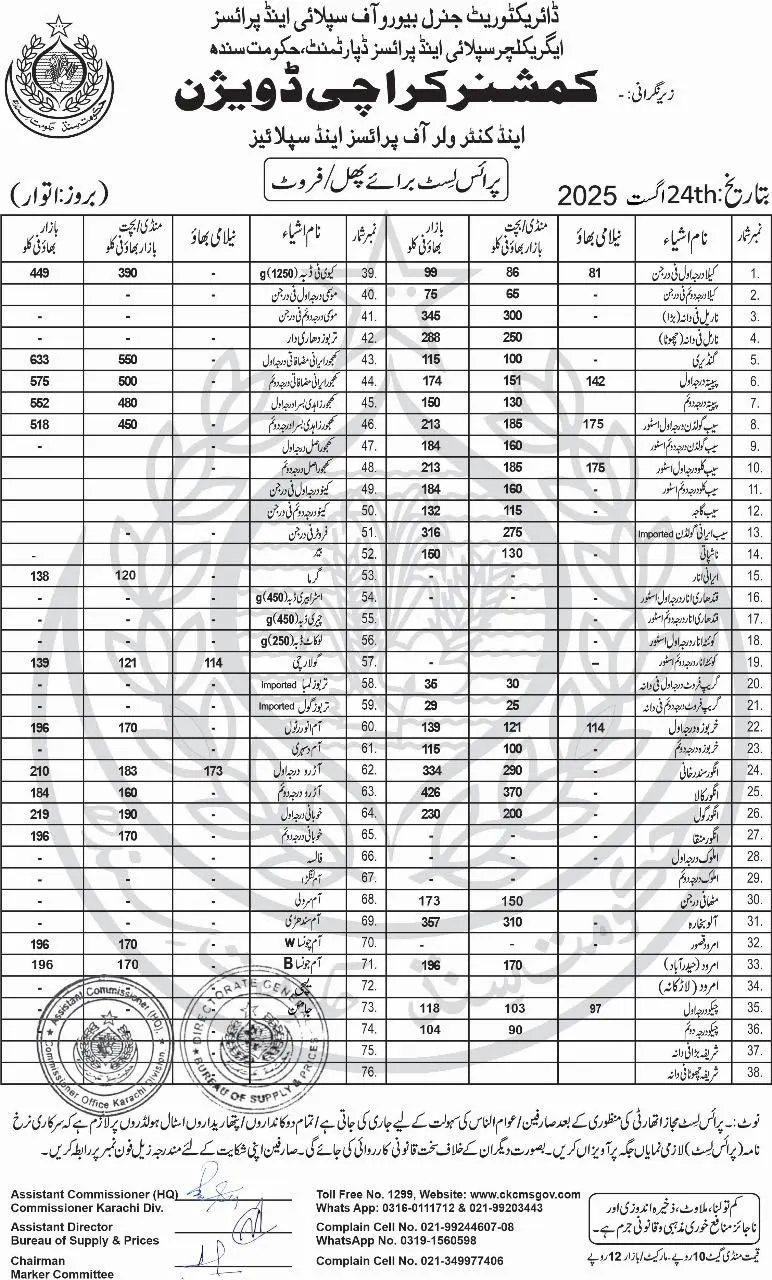 ڈائریکٹوریٹ جنرل بیورو آف سپلائی اینڈ پرائسز
ایگریکلچر سپلائی اینڈ پرائسز ڈپارٹمنٹ، حکومت سندھ
زیر نگرانی: -
کمشنر کراچی ڈویژن
اینڈ کنٹرولر آف پرائسز اینڈ سپلائیز
پرائس لسٹ برائے پھل/فروٹ
بتاریخ: 24th اگست 2025
(بروز: اتوار)
نمبر شمار نام اشیاء نیلامی بھاؤ منڈی/بچت بازار بھاؤ فی کلو بازار بھاؤ فی کلو
1. کیلا درجہ اول فی درجن 81 86 99
2. کیلا درجہ دوئم فی درجن - 65 75
3. ناریل فی دانہ (بڑا) - 300 345
4. ناریل فی دانہ (چھوٹا) - 250 288
5. گنڈیری - 100 115
6. پپیتہ درجہ اول 142 151 174
7. پپیتہ درجہ دوئم - 130 150
8. سیب گولڈن درجہ اول اسٹور 175 185 213
9. سیب گولڈن درجہ دوئم اسٹور - 160 184
10. سیب کلو درجہ اول اسٹور 175 185 213
11. سیب کلو درجہ دوئم اسٹور - 160 184
12. سیب گاجہ - 115 132
13. سیب ایرانی گولڈن Imported - 275 316
14. ناشپاتی - 130 150
15. ایرانی انار - - -
16. قندھاری انار درجہ اول اسٹور - - -
17. قندھاری انار درجہ دوئم اسٹور
18. کوئٹہ انار درجہ اول اسٹور
19. کوئٹہ انار درجہ دوئم اسٹور - - -
20. گریپ فروٹ درجہ اول فی دانہ - 30 35
21. گریپ فروٹ درجہ دوئم فی دانہ - 25 29
22. خربوزہ درجہ اول 114 121 139
23. خربوزہ درجہ دوئم - 100 115
24. انگور سندرخانی - 290 334
25. انگور کالا - 370 426
26. انگور گول - 200 230
27. انگور منقا - - -
28. املوک درجہ اول - - -
29. املوک درجہ دوئم - - -
30. مٹھا فی درجن - 150 173
31. آلو بخارہ - 310 357
32. امرود قصور - - -
33. امرود (حیدرآباد) - 170 196
34. امرود (لاڑکانہ)
35. چیکو درجہ اول 97 103 118
36. چیکو درجہ دوئم - 90 104
37. شریفہ بڑا فی دانہ
38. شریفہ چھوٹا فی دانہ
39. کیوی فی ڈبہ (1250)g - 390 449
40. موسمی درجہ اول فی درجن - - -
41. موسمی درجہ دوئم فی درجن - - -
42. تربوز دھاری دار - - -
43. کھجور ایرانی مضافاتی درجہ اول - 550 633
44. کھجور ایرانی مضافاتی درجہ دوئم - 500 575
45. کھجور زاہدی بسرا درجہ اول - 480 552
46. کھجور زاہدی بسرا درجہ دوئم - 450 518
47. کھجور اصل درجہ اول - - -
48. کھجور اصل درجہ دوئم - - -
49. کینو درجہ اول فی درجن
50. کینو درجہ دوئم فی درجن
51. فروٹر فی درجن - - -
52. - -
53. گرما - 120 138
54. اسٹرابیری ڈبہ (450)g - - -
55. چیری ڈبہ (450)g
56. لوکاٹ ڈبہ (250)g
57. گولارچی 114 121 139
58. تربوز لمبا Imported - - -
59. تربوز گول Imported - - -
60. آم انور رٹول - 170 196
61. آم دسہری - - -
62. آڑو درجہ اول 173 183 210
63. آڑو درجہ دوئم - 160 184
64. خوبانی درجہ اول - 190 219
65. خوبانی درجہ دوئم - 170 196
66. فالسہ - - -
67. آم لنگڑا - - -
68. آم سرولی - - -
69. آم سندھڑی - - -
70. آم چونسا W - 170 196
71. آم چونسا B - 170 196
72. لیچی - -
73. جامن
74.
75.
76.
Assistant Commissioner (HQ),
Commissioner Office Karachi Division
DIRECTORATE GENERAL
BUREAU OF SUPPLY & PRICES
نوٹ:۔ پرائس لسٹ مجاز اتھارٹی کی منظوری کے بعد صارفین/عوام الناس کی سہولت کے لیے جاری کی جاتی ہے/تمام دوکانداروں/پتھاریداروں اسٹال ہولڈروں پر لازم ہے کہ سرکاری نرخ
نامہ (پرائس لسٹ) لازمی نمایاں جگہ پر آویزاں کریں۔ بصورت دیگر ان کے خلاف سخت قانونی کارروائی کی جائے گی۔ صارفین اپنی شکایت کے لئے مندرجہ زیل فون نمبر پر رابطہ کریں۔
Assistant Commissioner (HQ)
Commissioner Karachi Div.
Assistant Director
Bureau of Supply & Prices
Chairman
Marker Committee
Toll Free No. 1299, Website: www.ckcmsgov.com
Whats App: 0316-0111712 & 021-99203443
Complain Cell No. 021-99244607-08
WhatsApp No. 0319-1560598
Complain Cell No. 021-349977406
کم تولنا، ملاوٹ، ذخیرہ اندوزی اور
ناجائز منافع خوری مذہبی و قانونی جرم ہے۔
قیمت منڈی گیٹ 10 روپے۔ مارکیٹ/بازار 12 روپے